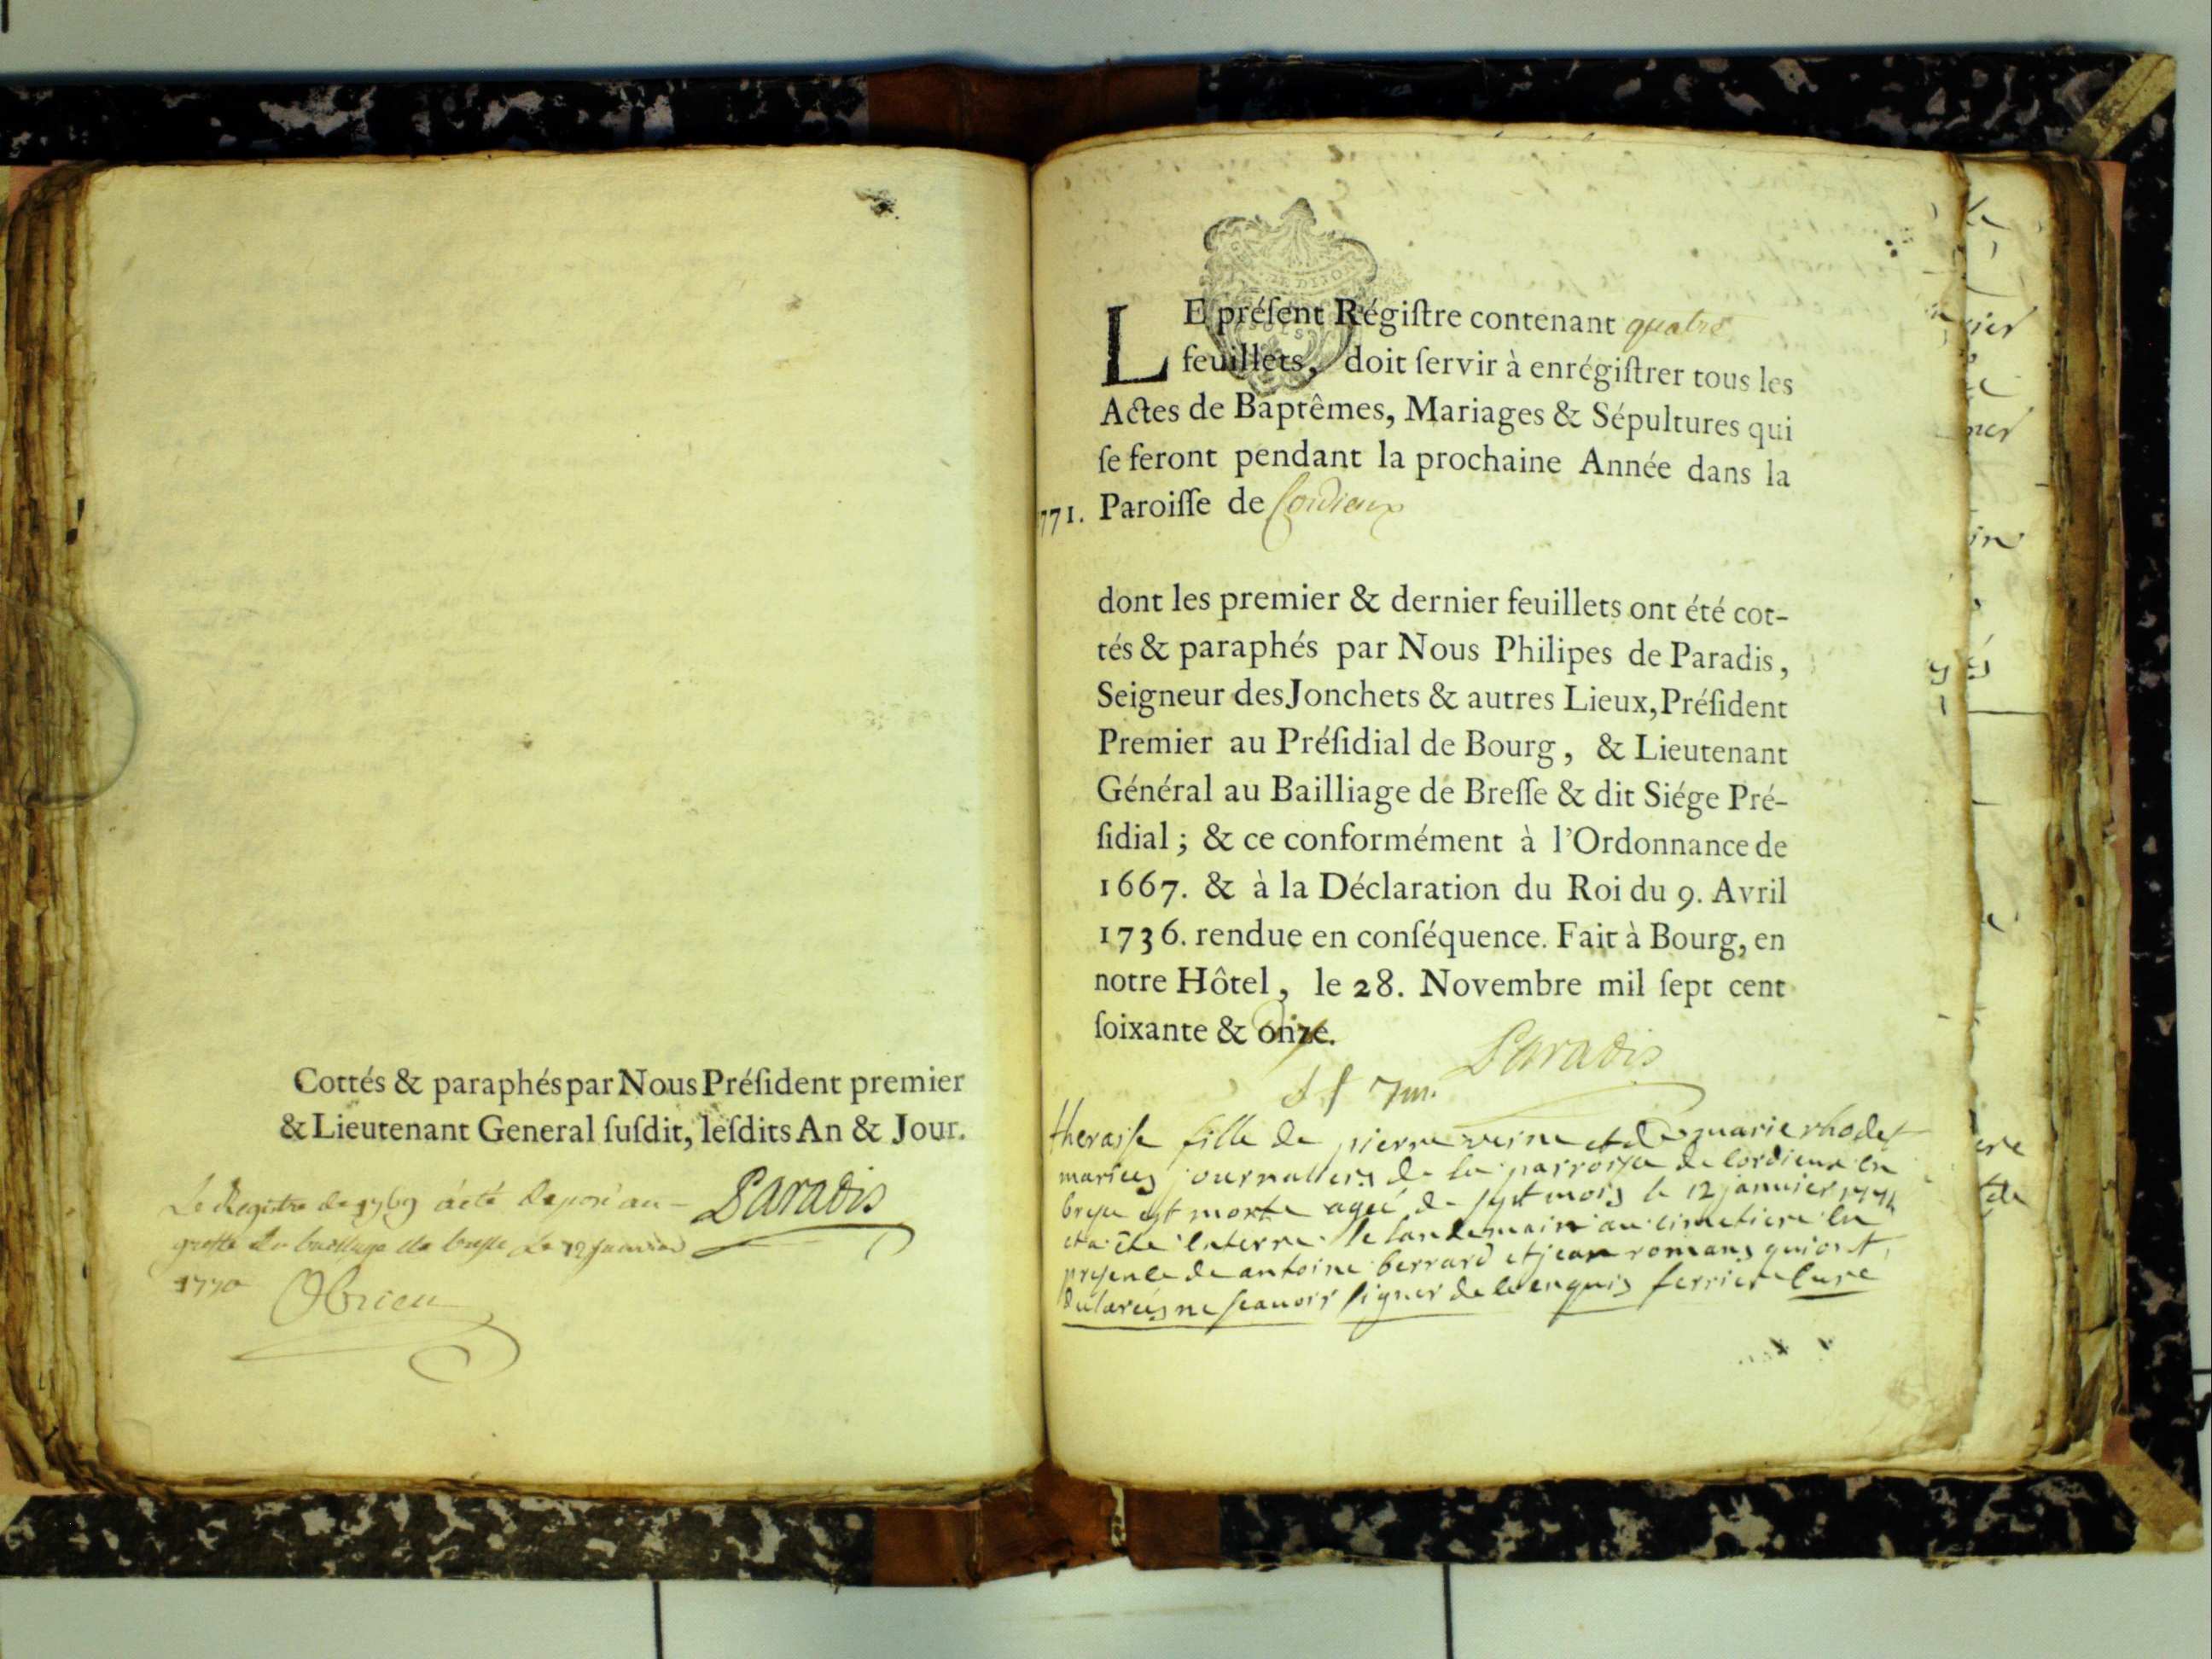 Cottés & paraphés par Nous Préſident premier
& Lieutenant General ſuſdit, leſdits An & Jour.
Le Registre de 1769 a été deposé au
Paradis
greffe du bailliage de bresse le 12 Janvier
1770
Obrieu
LE préſent Régiſtre contenant quatre
feuillets, doit ſervir à enrégiſtrer tous les
Actes de Baptêmes, Mariages & Sépultures qui
ſe feront pendant la prochaine Année dans la
771. Paroiſſe de Cordieux
dont les premier & dernier feuillets ont été cot-
tés & paraphés par Nous Philipes de Paradis,
Seigneur des Jonchets & autres Lieux, Préſident
Premier au Préſidial de Bourg, & Lieutenant
Général au Bailliage de Breſſe & dit Siége Pré-
ſidial; & ce conformément à l'Ordonnance de
1667. & à la Déclaration du Roi du 9. Avril
1736. rendue en conſéquence. Fait à Bourg, en
notre Hôtel, le 28. Novembre mil ſept cent
ſoixante & onze.
Paradis
theraise fille de pierre et de marie rhodet
mariez journaliers de la parroisse de Cordieux en
est morte agee de sept mois le 12 janvier 1771
et a ête enterre le landemain au cimetiere en
presence de antoine berrard et jean romans qui ont
declarés ne scauoir signer de ce enquis ferrier cure